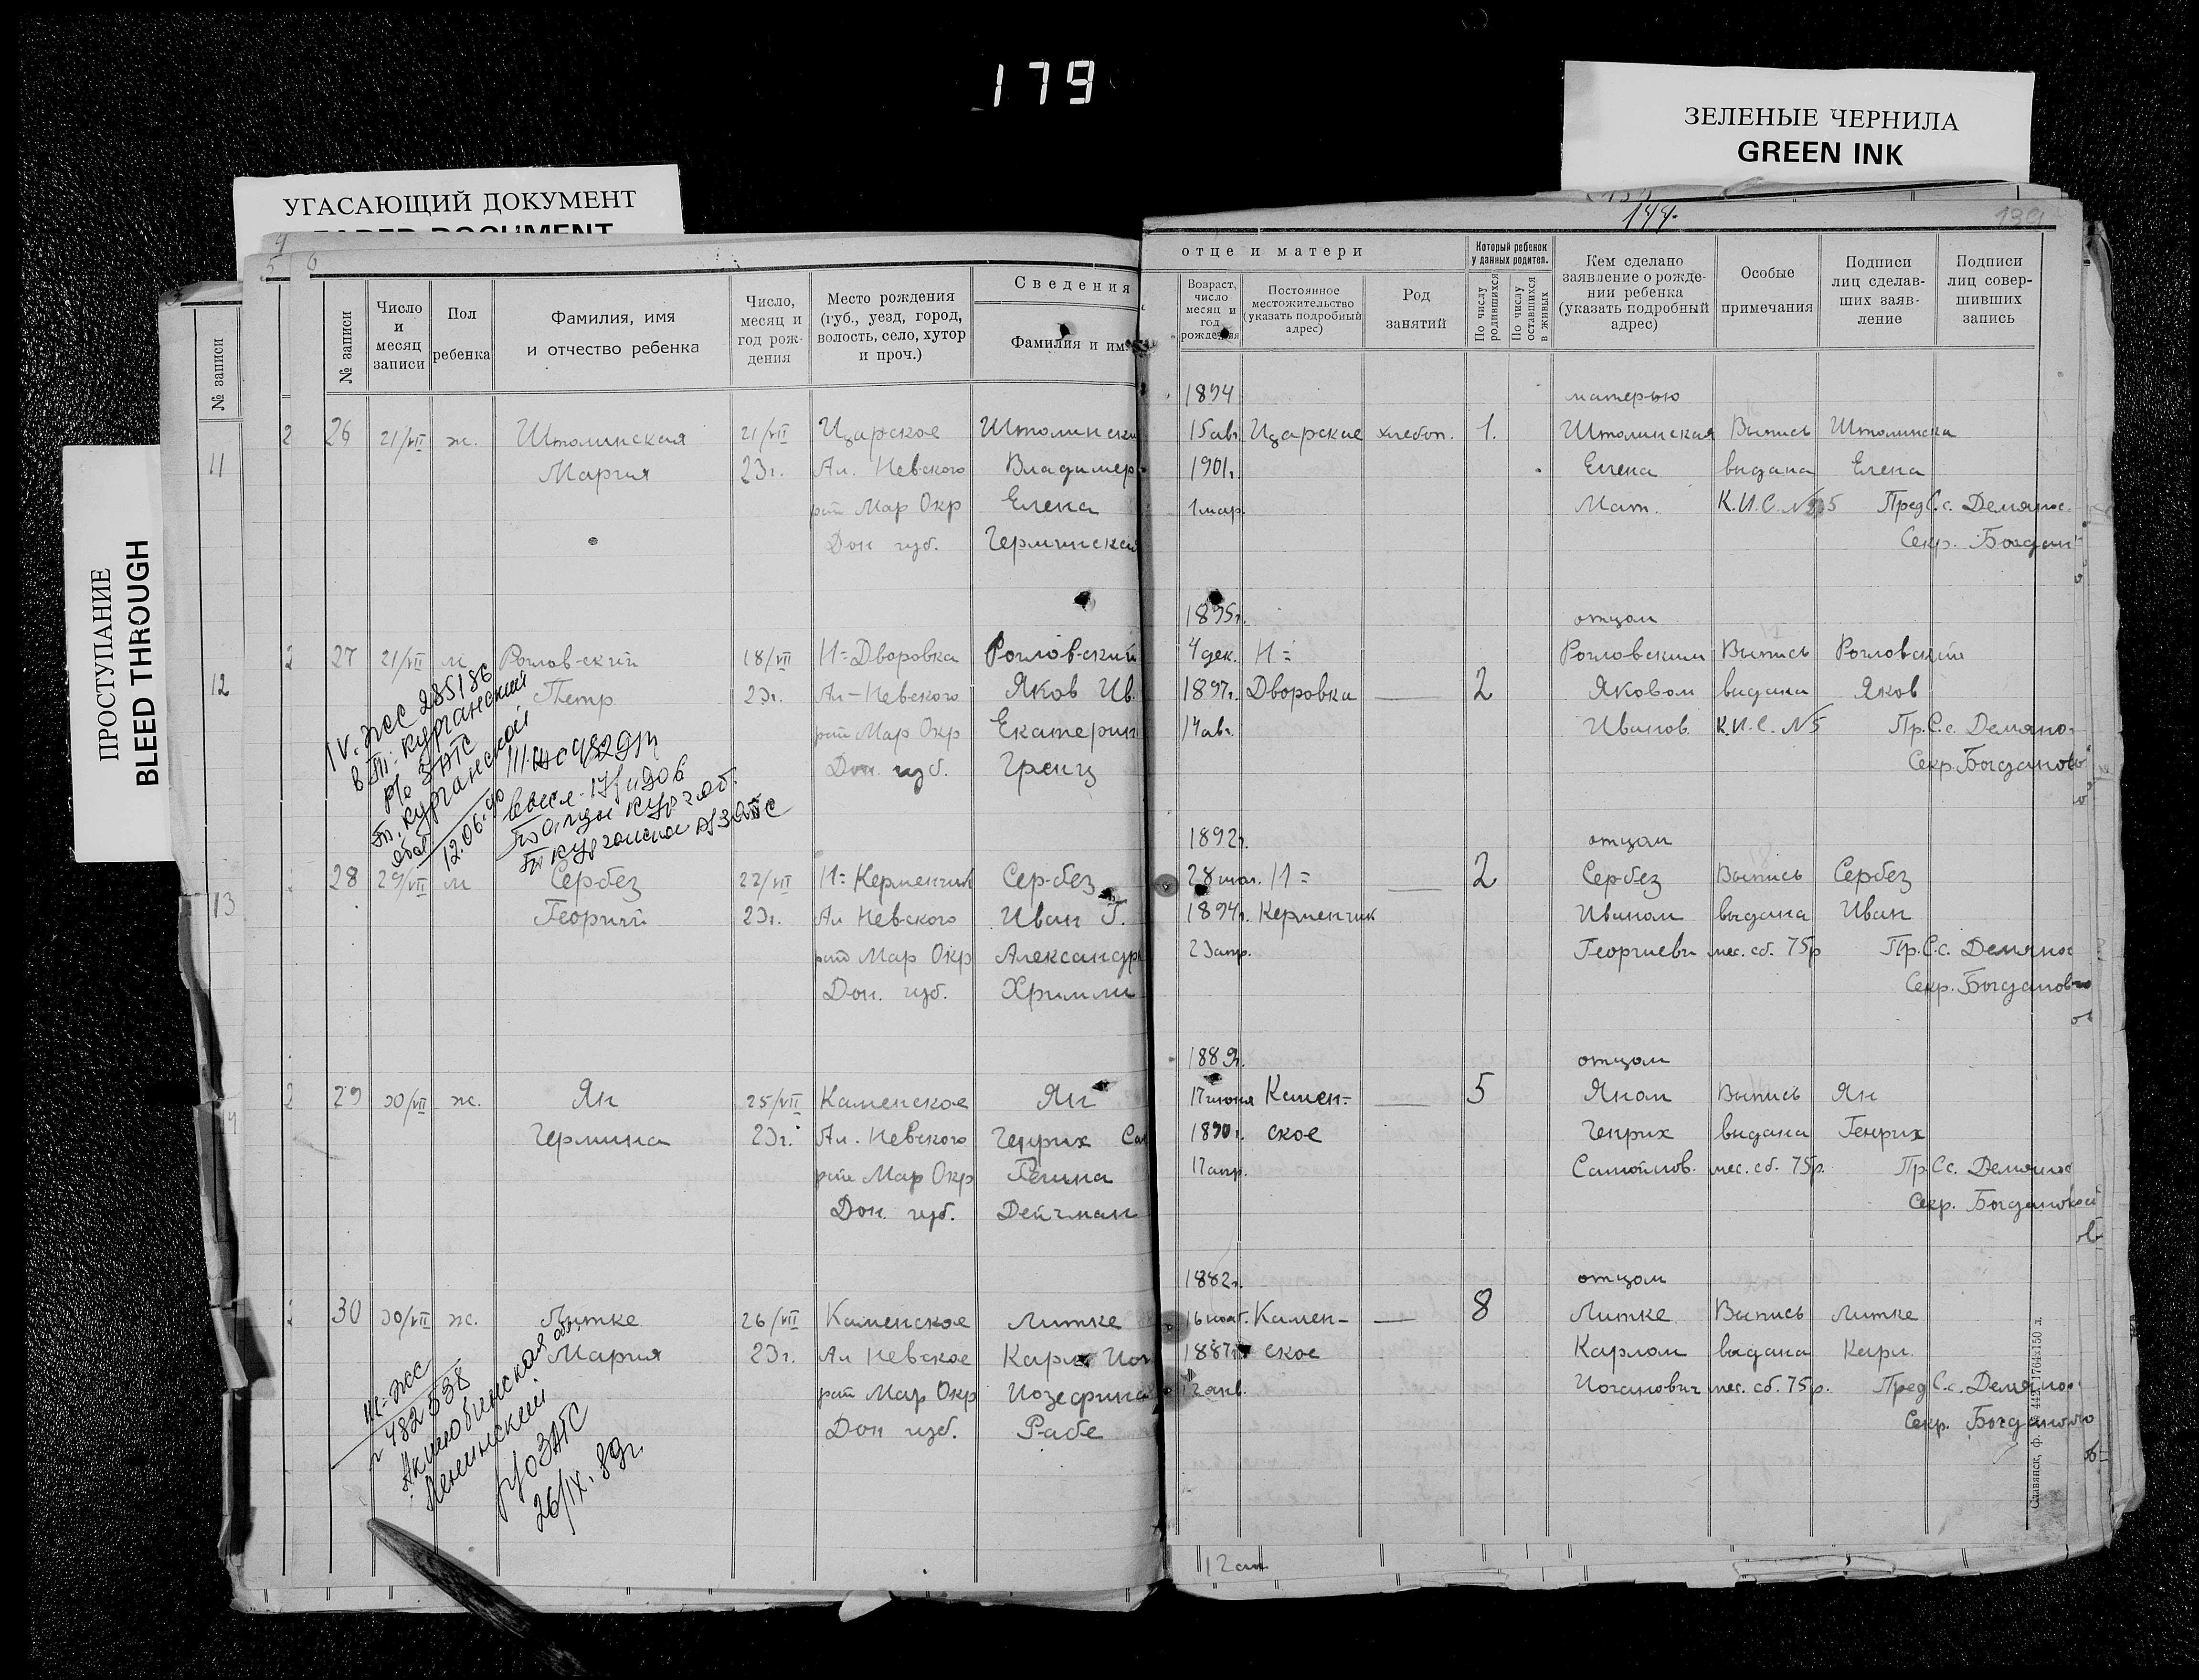 179
ЗЕЛЕНЫЕ ЧЕРНИЛА
GREEN INK
УГАСАЮЩИЙ ДОКУМЕНТ
ПРОСТУПАНИЕ
BLEED THROUGH
144.
139
№ записи
11
12
13
№ записи
Число и месяц записи
Пол ребенка
Фамилия, имя и отчество ребенка
Число, месяц и год рождения
Место рождения (губ., уезд, город, волость, село, хутор и проч.)
Сведения
Фамилия и им
отце и матери
Возраст, число месяц и год рождения
Постоянное местожительство (указать подробный адрес)
Род занятий
Который ребенок у данных родител.
По числу родившихся
По числу оставшихся в живых
Кем сделано заявление о рождении ребенка (указать подробный адрес)
Особые примечания
Подписи лиц сделавших заявление
Подписи лиц совершивших запись
1894 матерью
2 26 21/VII ж. Штолинская 21/VII Царское Штолински 15 авг Царское хлебоп. 1. Штолинская Выпись Штолинска
Мария 23г. Ал. Невского Владимер 1901г. Елена выдана Елена
рай Мар Окр Елена 1 мар. Мат. К.И.С. Пред С.с. Демянов
Дон губ. Секр. Богдан
1895г. отцом
2 27 21/VII м Рогловский 18/VII Н=Дворовка Рогловский 4 дек. Н= Рогловским Выпись Рогловский
Петр 23г. Ал-Невского Яков Ив. 1897г. Дворовка — 2 Яковом выдана Яков
рай Мар Окр Екатерин 14 авг. Иванов. К.И.С. №5 Пр.С.с. Демяно
Дон. губ. Гренц Секр. Богданов
IV. ЖС 285186
12.06.90
1892г. отцом
28 29/VII м Сербез 22/VII Н=Керменчик Сербез 28 Н= — 2 Сербез Выпись Сербез
Георгий 23г. Ал Невского Иван Г. 1894г. Керменчик Иваном выдана Иван
рай Мар Окр Александр 23 апр. Георгиеви мес. сб. 75р Пр.С.с. Демянов
Дон. губ. Хримли Секр. Богданов
1889г. отцом
2 29 30/VII ж. Ян 25/VII Каменское Ян 17 июня Камен= — 5 Яном Выпись Ян
Гермина 23г. Ал. Невского Генрих Сам 1890г. ское Генрих выдана Генрих
рай Мар Окр Гелина 17 апр. Самойлов. мес. сб. 75р. Пр.С.с. Демянов
Дон. губ. Дейчман Секр. Богданов
1882г. отцом
30 30/VII ж. Литке 26/VII Каменское Литке 16 нояб. Камен- — 8 Литке Выпись Литке
Мария 23г. Ал Невское Карл Иог 1887г. ское Карлом выдана Карл
рай Мар Окр Иозефина 12 янв. Иоганович мес. сб. 75р. Пред С.с. Демянов
Дон губ. Рабе Секр. Богданов
III-ЖС
№ 482538
Актюбинская обл.
Ленинский
р/о ЗАГС
26/IX.89г.